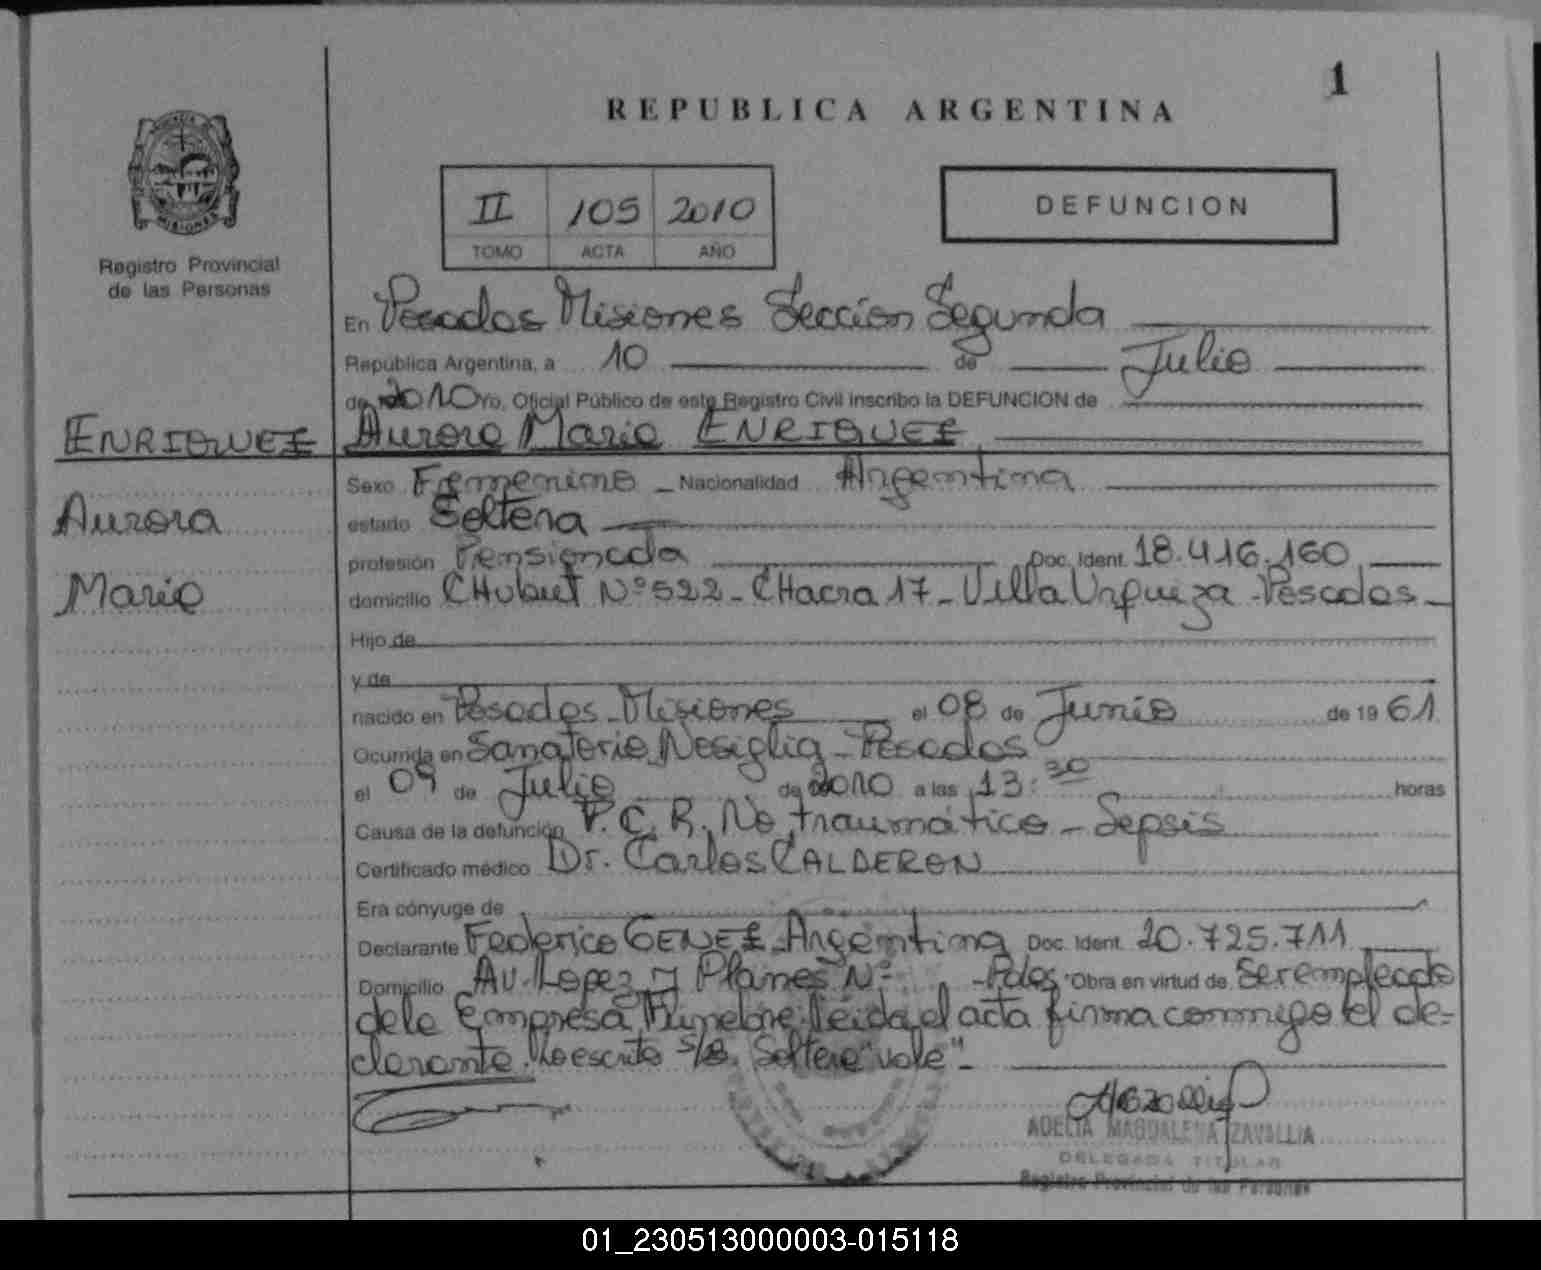 1
REPUBLICA ARGENTINA
II 105 2010
TOMO ACTA AÑO
DEFUNCION
MISIONES
Registro Provincial
de las Personas
En Posadas Misiones Sección Segunda
República Argentina, a 10 de Julio
de 2010 Yo, Oficial Público de este Registro Civil inscribo la DEFUNCION de
ENRIQUEZ Aurora Maria ENRIQUEZ
Aurora
Maria
Sexo Femenino - Nacionalidad Argentina
estado Soltera
profesión Pensionada Doc. Ident. 18.416.160
domicilio CHubut Nº 522 - CHacra 17 - Villa Urquiza - Posadas -
Hijo de
y de
nacido en Posadas - Misiones el 08 de Junio de 19 61
Ocurrida en Sanatorio Nosiglia - Posadas
el 09 de Julio de 2010 a las 13:30 horas
Causa de la defunción P.C.R. No traumático - Sepsis
Certificado médico Dr. Carlos CALDERON
Era cónyuge de
Declarante Federico GENEZ - Argentina Doc. Ident. 20.725.711
Domicilio Av. Lopez y Planes Nº - Pdas Obra en virtud de Ser empleado
de la Empresa Fúnebre. Leída el acta firma conmigo el de-
clarante. Lo escrito s/r. Soltera "vale" -
ADELIA MAGDALENA ZAVALLIA
DELEGADA TITULAR
Registro Provincial de las Personas
01_230513000003-015118